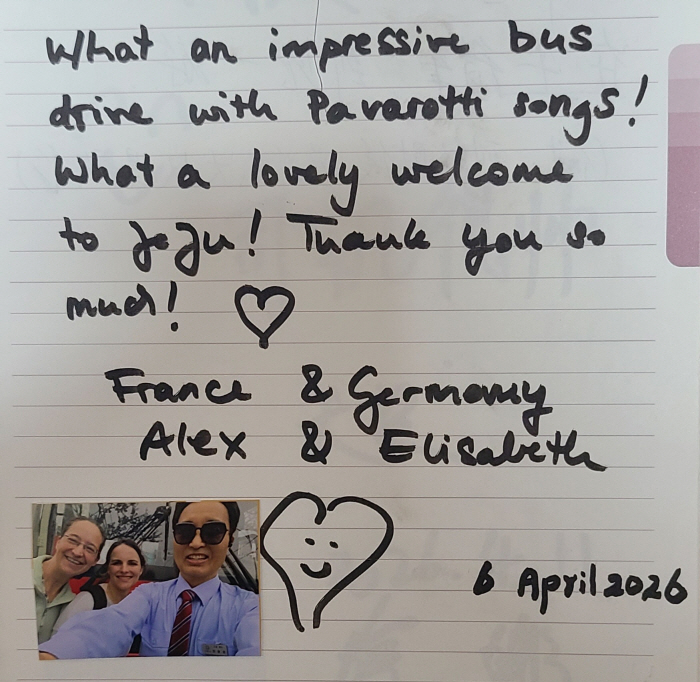 What an impressive bus
drive with Pavarotti songs!
What a lovely welcome
to Jeju! Thank you so
much! ♡
France & Germany
Alex & Elisabeth
6 April 2026